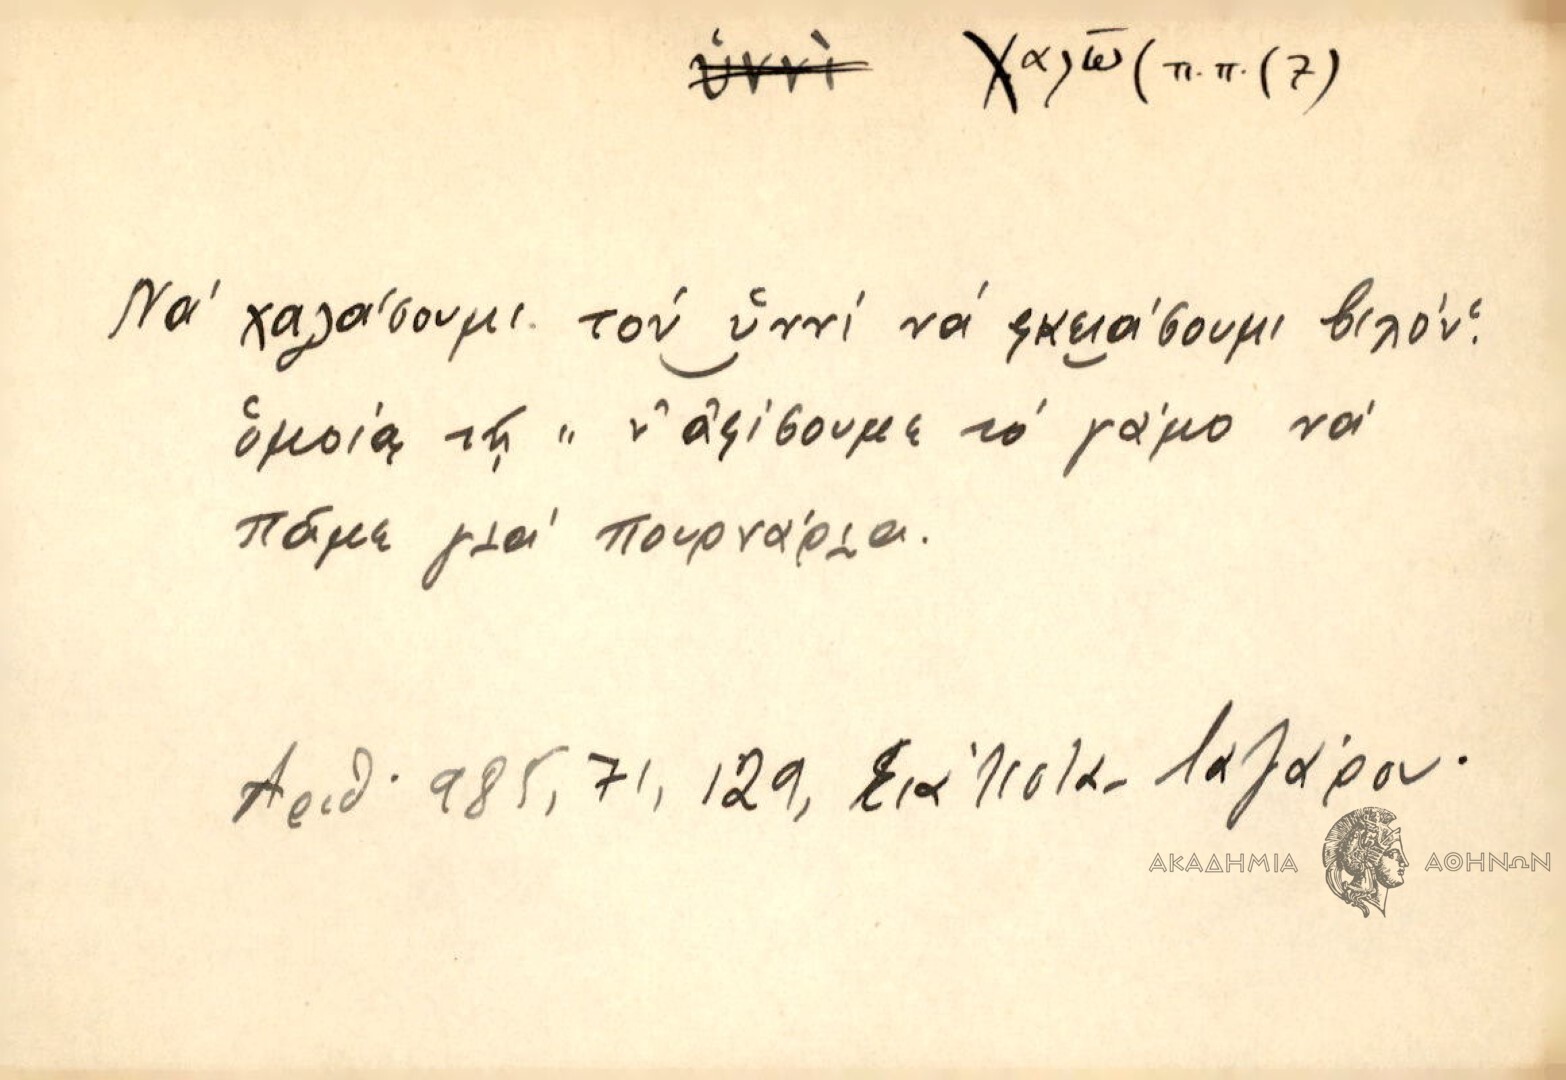 ὑννὶ Χαλῶ (π.π. (7)
Νά χαλάσουμι τού ὑννί νά ςκειάσουμι βιλόν'
ὁμοία τῇ " ν' ἀφίσουμε τό γάμο νά
πᾶμε γιά πουρνάρια.
Ἀριθ. 985, 71, 129, Σιάτιστα - Λαζάρου.
ΑΚΑΔΗΜΙΑ ΑΘΗΝΩΝ